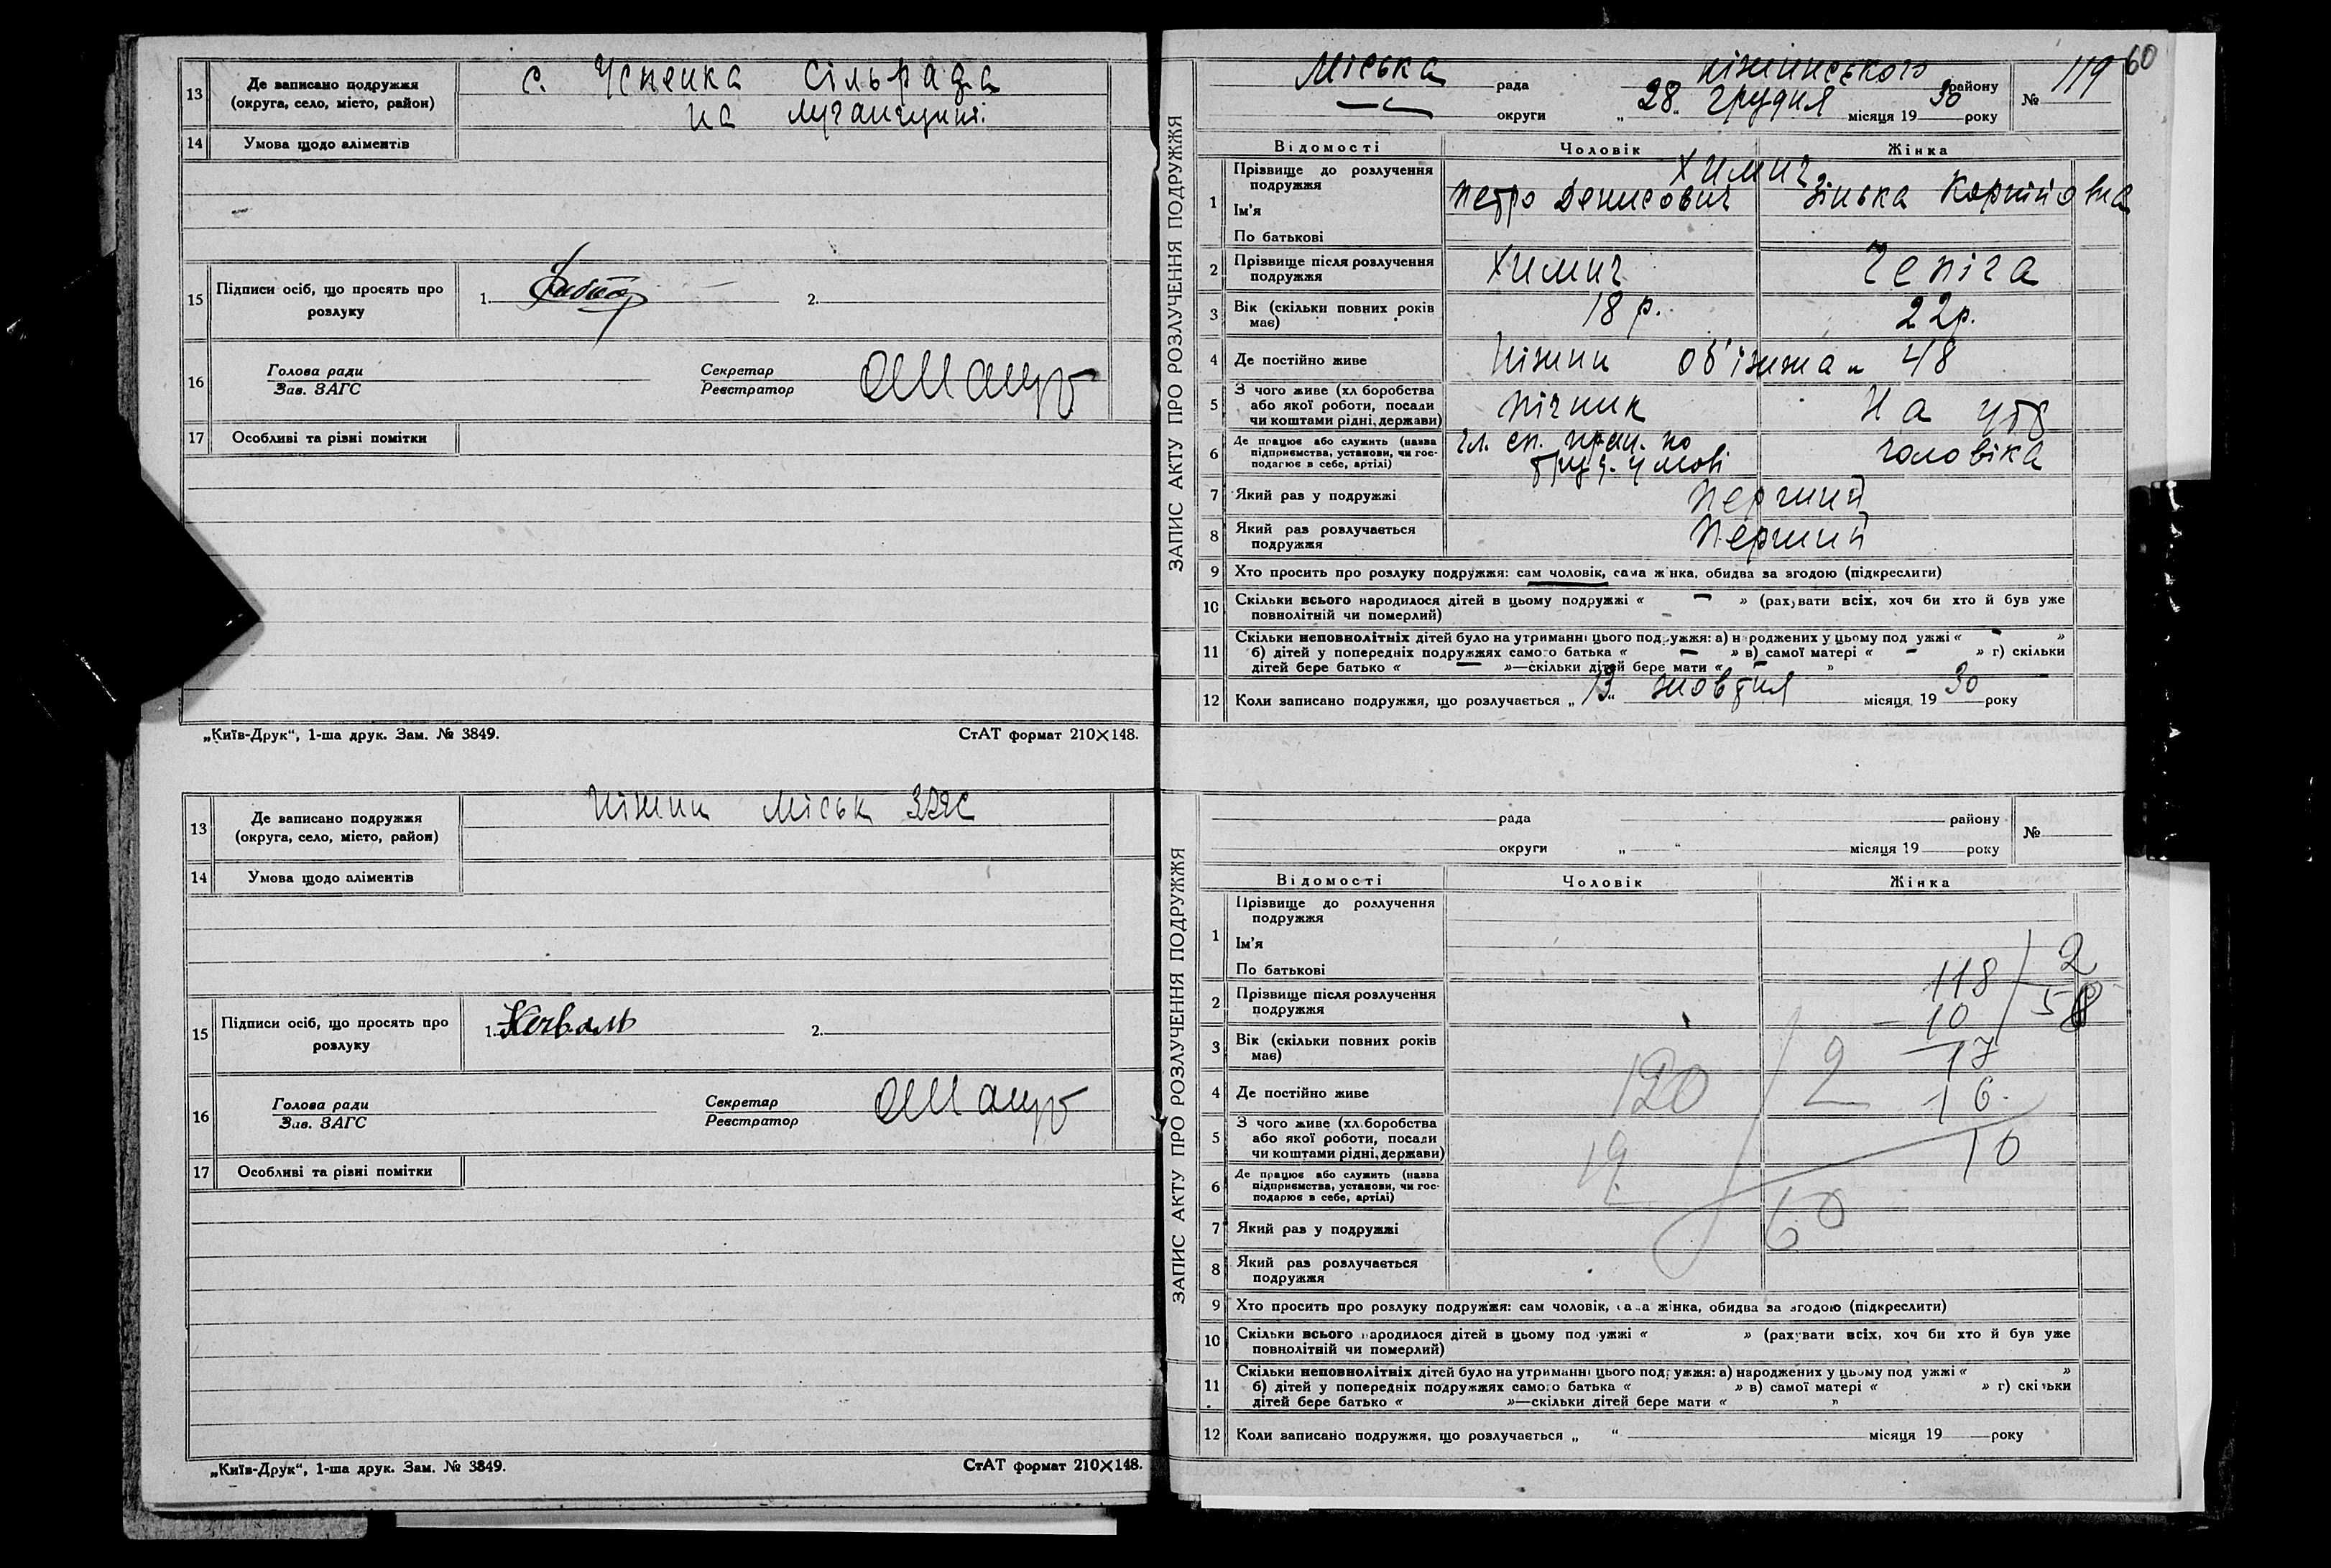 13 Де записано подружжя (округа, село, місто, район) с. Успенка Сільрада
на Луганщині.
14 Умова щодо аліментів
15 Підписи осіб, що просять про розлуку 1. 2.
16 Голова ради Секретар
Зав. ЗАГС Реєстратор
17 Особливі та різні помітки
„Київ-Друк“, 1-ша друк. Зам. № 3849. СтАТ формат 210×148.
13 Де записано подружжя (округа, село, місто, район) Ніжин Міськ ЗАГС
14 Умова щодо аліментів
15 Підписи осіб, що просять про розлуку 1. 2.
16 Голова ради Секретар
Зав. ЗАГС Реєстратор
17 Особливі та різні помітки
„Київ-Друк“, 1-ша друк. Зам. № 3849. СтАТ формат 210×148.
60
ЗАПИС АКТУ ПРО РОЗЛУЧЕННЯ ПОДРУЖЖЯ
Міська рада Ніжинського району № 119
округи „28“ грудня місяця 1930 року
Відомості Чоловік Жінка
1 Прізвище до розлучення подружжя Химич
Ім’я Петро Денисович Зінька Корніївна
По батькові
2 Прізвище після розлучення подружжя Химич Чепіга
3 Вік (скільки повних років має) 18 р. 22 р.
4 Де постійно живе Ніжин Об'їзжа 48
5 З чого живе (хліборобства або якої роботи, посади чи коштами рідні, держави) Пічник На утр
6 Де працює або служить (назва підприємства, установи, чи господарює в себе, артілі) труд. умові чоловіка
7 Який раз у подружжі Перший
8 Який раз розлучається подружжя Перший
9 Хто просить про розлуку подружжя: сам чоловік, сама жінка, обидва за згодою (підкреслити)
10 Скільки всього народилося дітей в цьому подружжі « — » (рахувати всіх, хоч би хто й був уже
повнолітній чи померлий)
11 Скільки неповнолітніх дітей було на утриманні цього подружжя: а) народжених у цьому подружжі « — »
б) дітей у попередніх подружжях самого батька « — » в) самої матері « — » г) скільки
дітей бере батько « — »—скільки дітей бере мати « — »
12 Коли записано подружжя, що розлучається „13“ жовтня місяця 1930 року
ЗАПИС АКТУ ПРО РОЗЛУЧЕННЯ ПОДРУЖЖЯ
рада району №
округи „ “ місяця 19 року
Відомості Чоловік Жінка
1 Прізвище до розлучення подружжя
Ім’я
По батькові
2 Прізвище після розлучення подружжя
3 Вік (скільки повних років має)
4 Де постійно живе
5 З чого живе (хліборобства або якої роботи, посади чи коштами рідні, держави)
6 Де працює або служить (назва підприємства, установи, чи господарює в себе, артілі)
7 Який раз у подружжі
8 Який раз розлучається подружжя
118 2
10
17
16
10
120 2
60
9 Хто просить про розлуку подружжя: сам чоловік, сама жінка, обидва за згодою (підкреслити)
10 Скільки всього народилося дітей в цьому подружжі « » (рахувати всіх, хоч би хто й був уже
повнолітній чи померлий)
11 Скільки неповнолітніх дітей було на утриманні цього подружжя: а) народжених у цьому подружжі « »
б) дітей у попередніх подружжях самого батька « » в) самої матері « » г) скільки
дітей бере батько « »—скільки дітей бере мати « »
12 Коли записано подружжя, що розлучається „ “ місяця 19 року